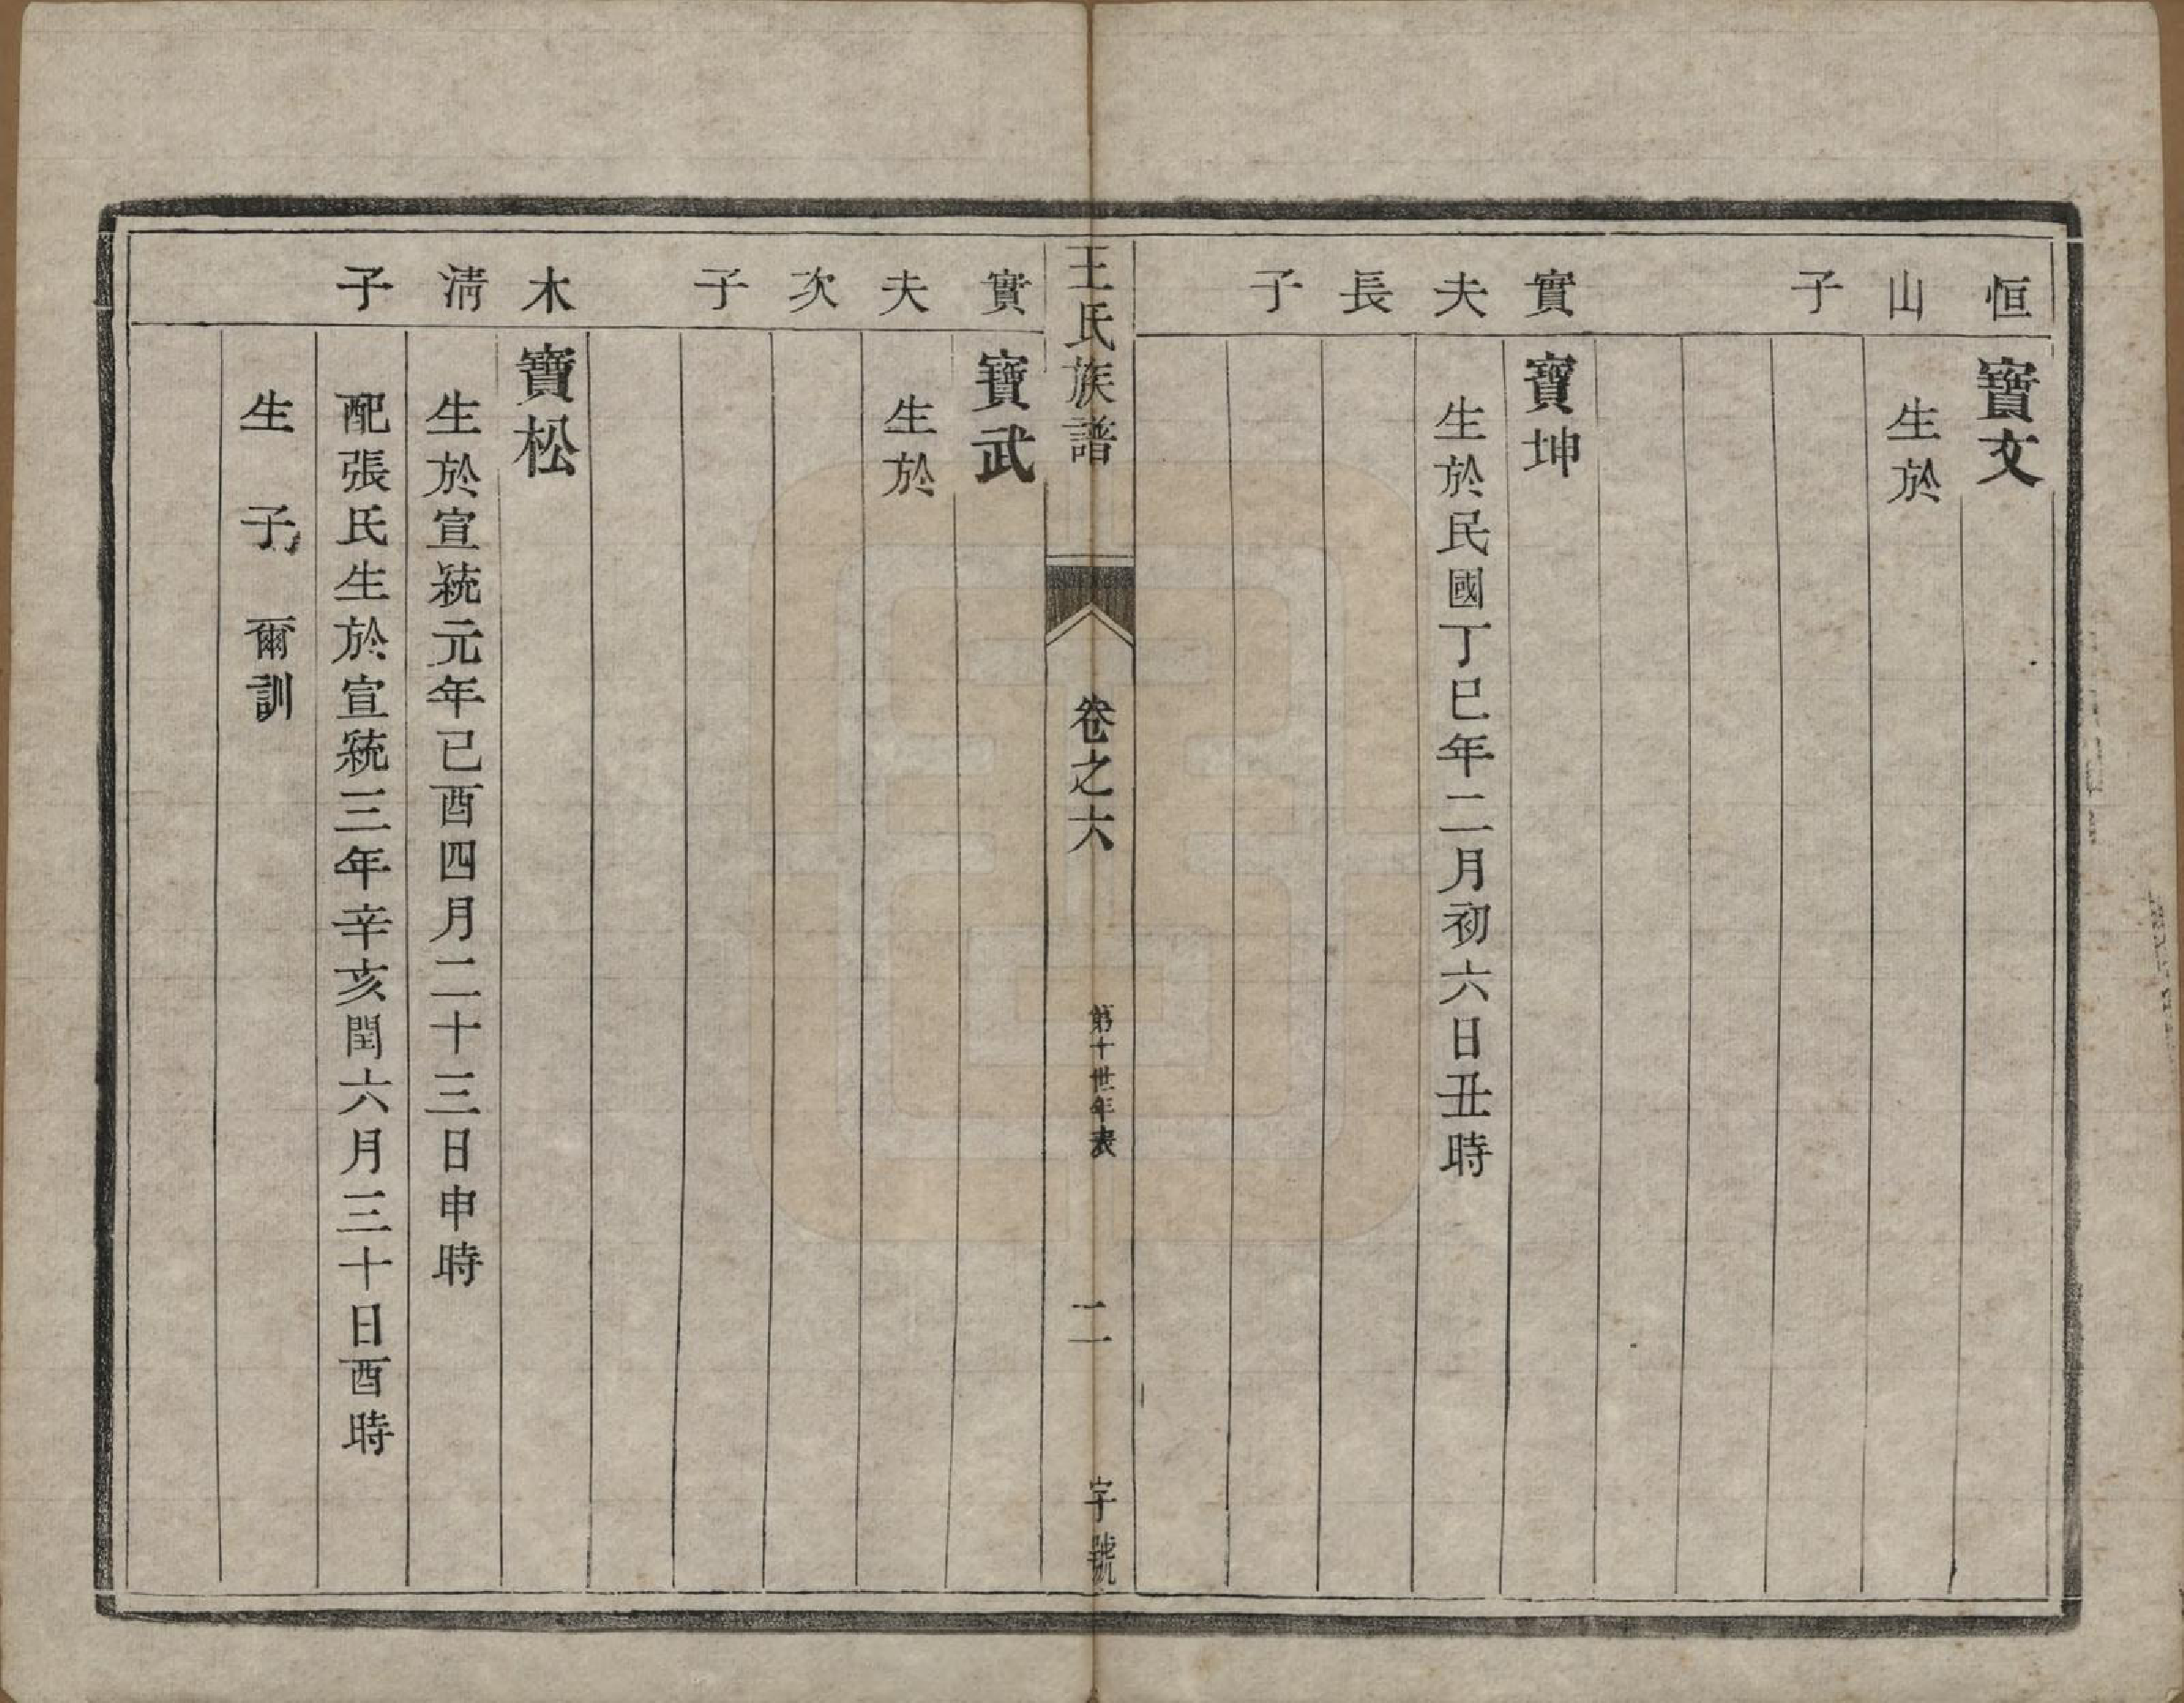 恒山子
寶文
生於
實夫長子
寶坤
生於民國丁巳年二月初六日丑時
王氏族譜
卷之六
第十世年表
二
字號
實夫次子
寶武
生於
木淸子
寶松
生於宣統元年己酉四月二十三日申時
配張氏生於宣統三年辛亥閏六月三十日酉時
生子爾訓